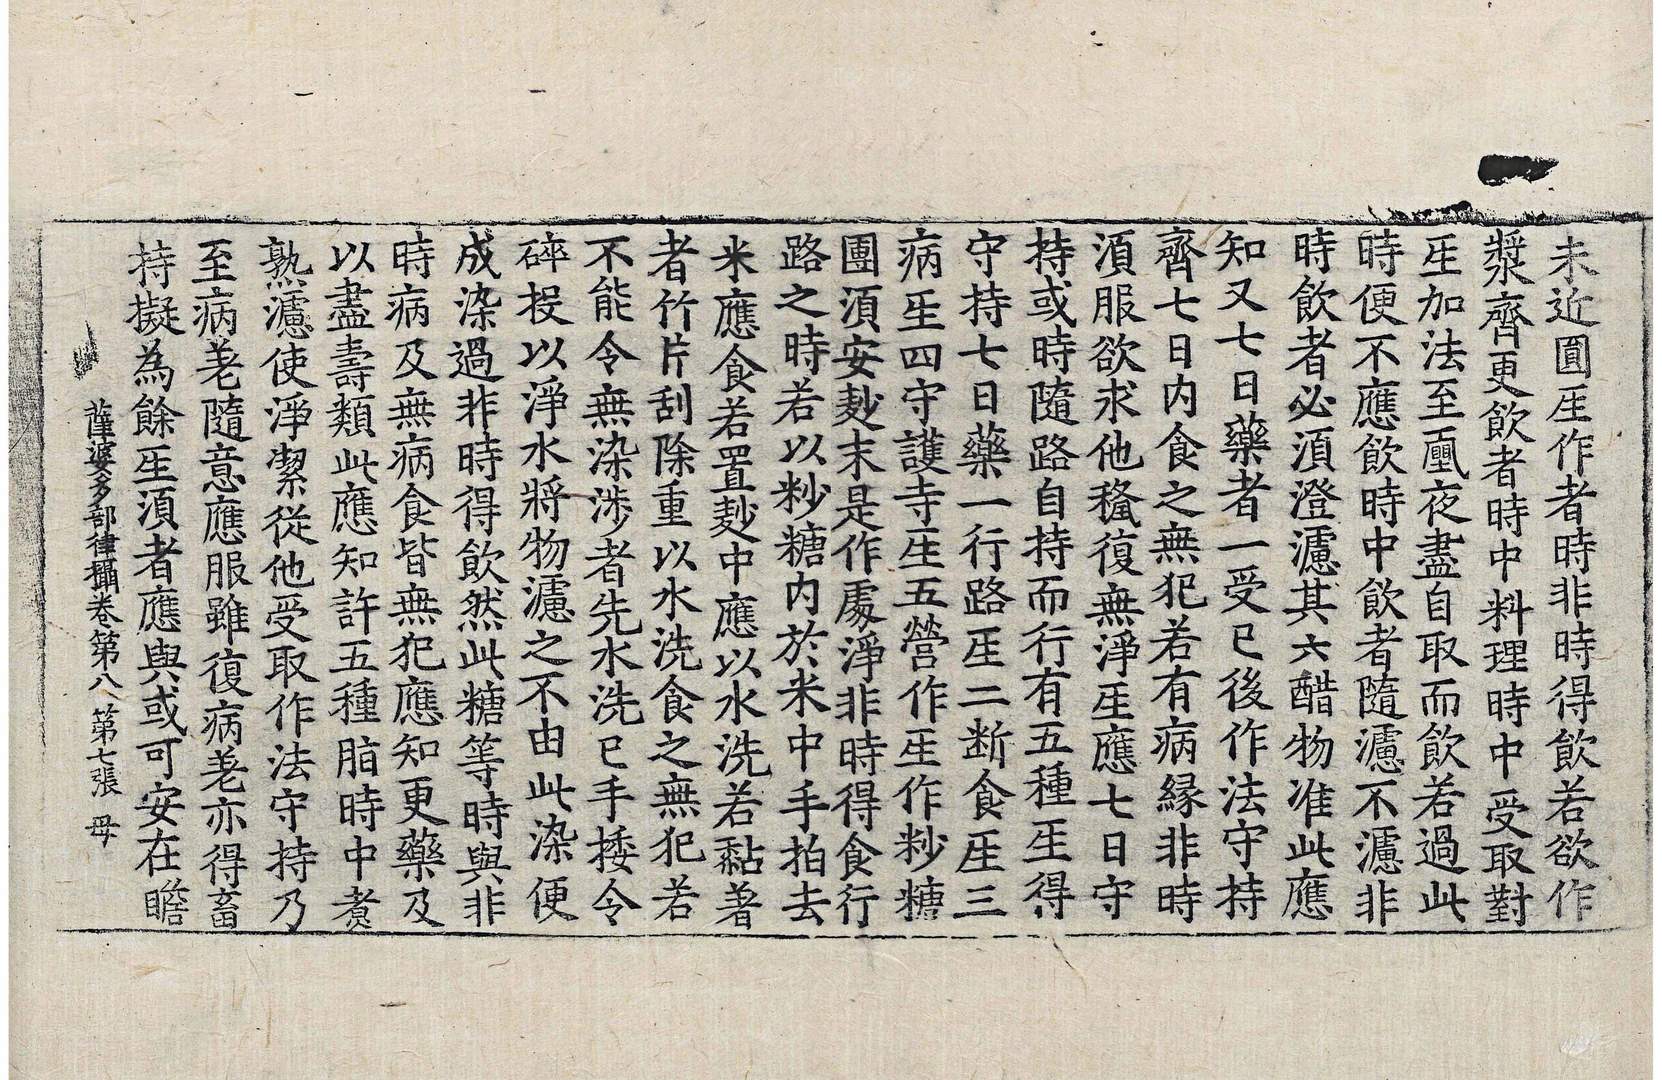 未近圎𤯔作者時非時得飲若欲作
漿齊更飲者時中料理時中受取對
𤯔加法至夜盡自取而飲若過此
時便不應飲時中飲者隨濾不濾非
時飲者必須澄濾其六醋物准此應
知又七日藥者一受已後作法守持
齊七日内食之無犯若有病緣非時
須服欲求他𥡴復無淨𤯔應七日守
持或時隨路自持而行有五種𤯔得
守持七日藥一行路𤯔二断食𤯔三
病𤯔四守護寺𤯔五營作𤯔作粆糖
團須安麨末是作處淨非時得食行
路之時若以粆糖内於米中手拍去
米應食若置麨中應以水洗若黏著
者竹片刮除重以水洗食之無犯若
不能令無染涉者先水洗已手捼令
碎投以淨水將物濾之不由此染便
成染過非時得飲然此糖等時與非
時病及無病食皆無犯應知更藥及
以盡壽類此應知許五種脂時中煮
熟濾使淨潔從他受取作法守持乃
至病差隨意應服雖復病差亦得畜
持擬為餘𤯔須者應與或可安在瞻
薩婆多部律攝卷第八 第七張 母